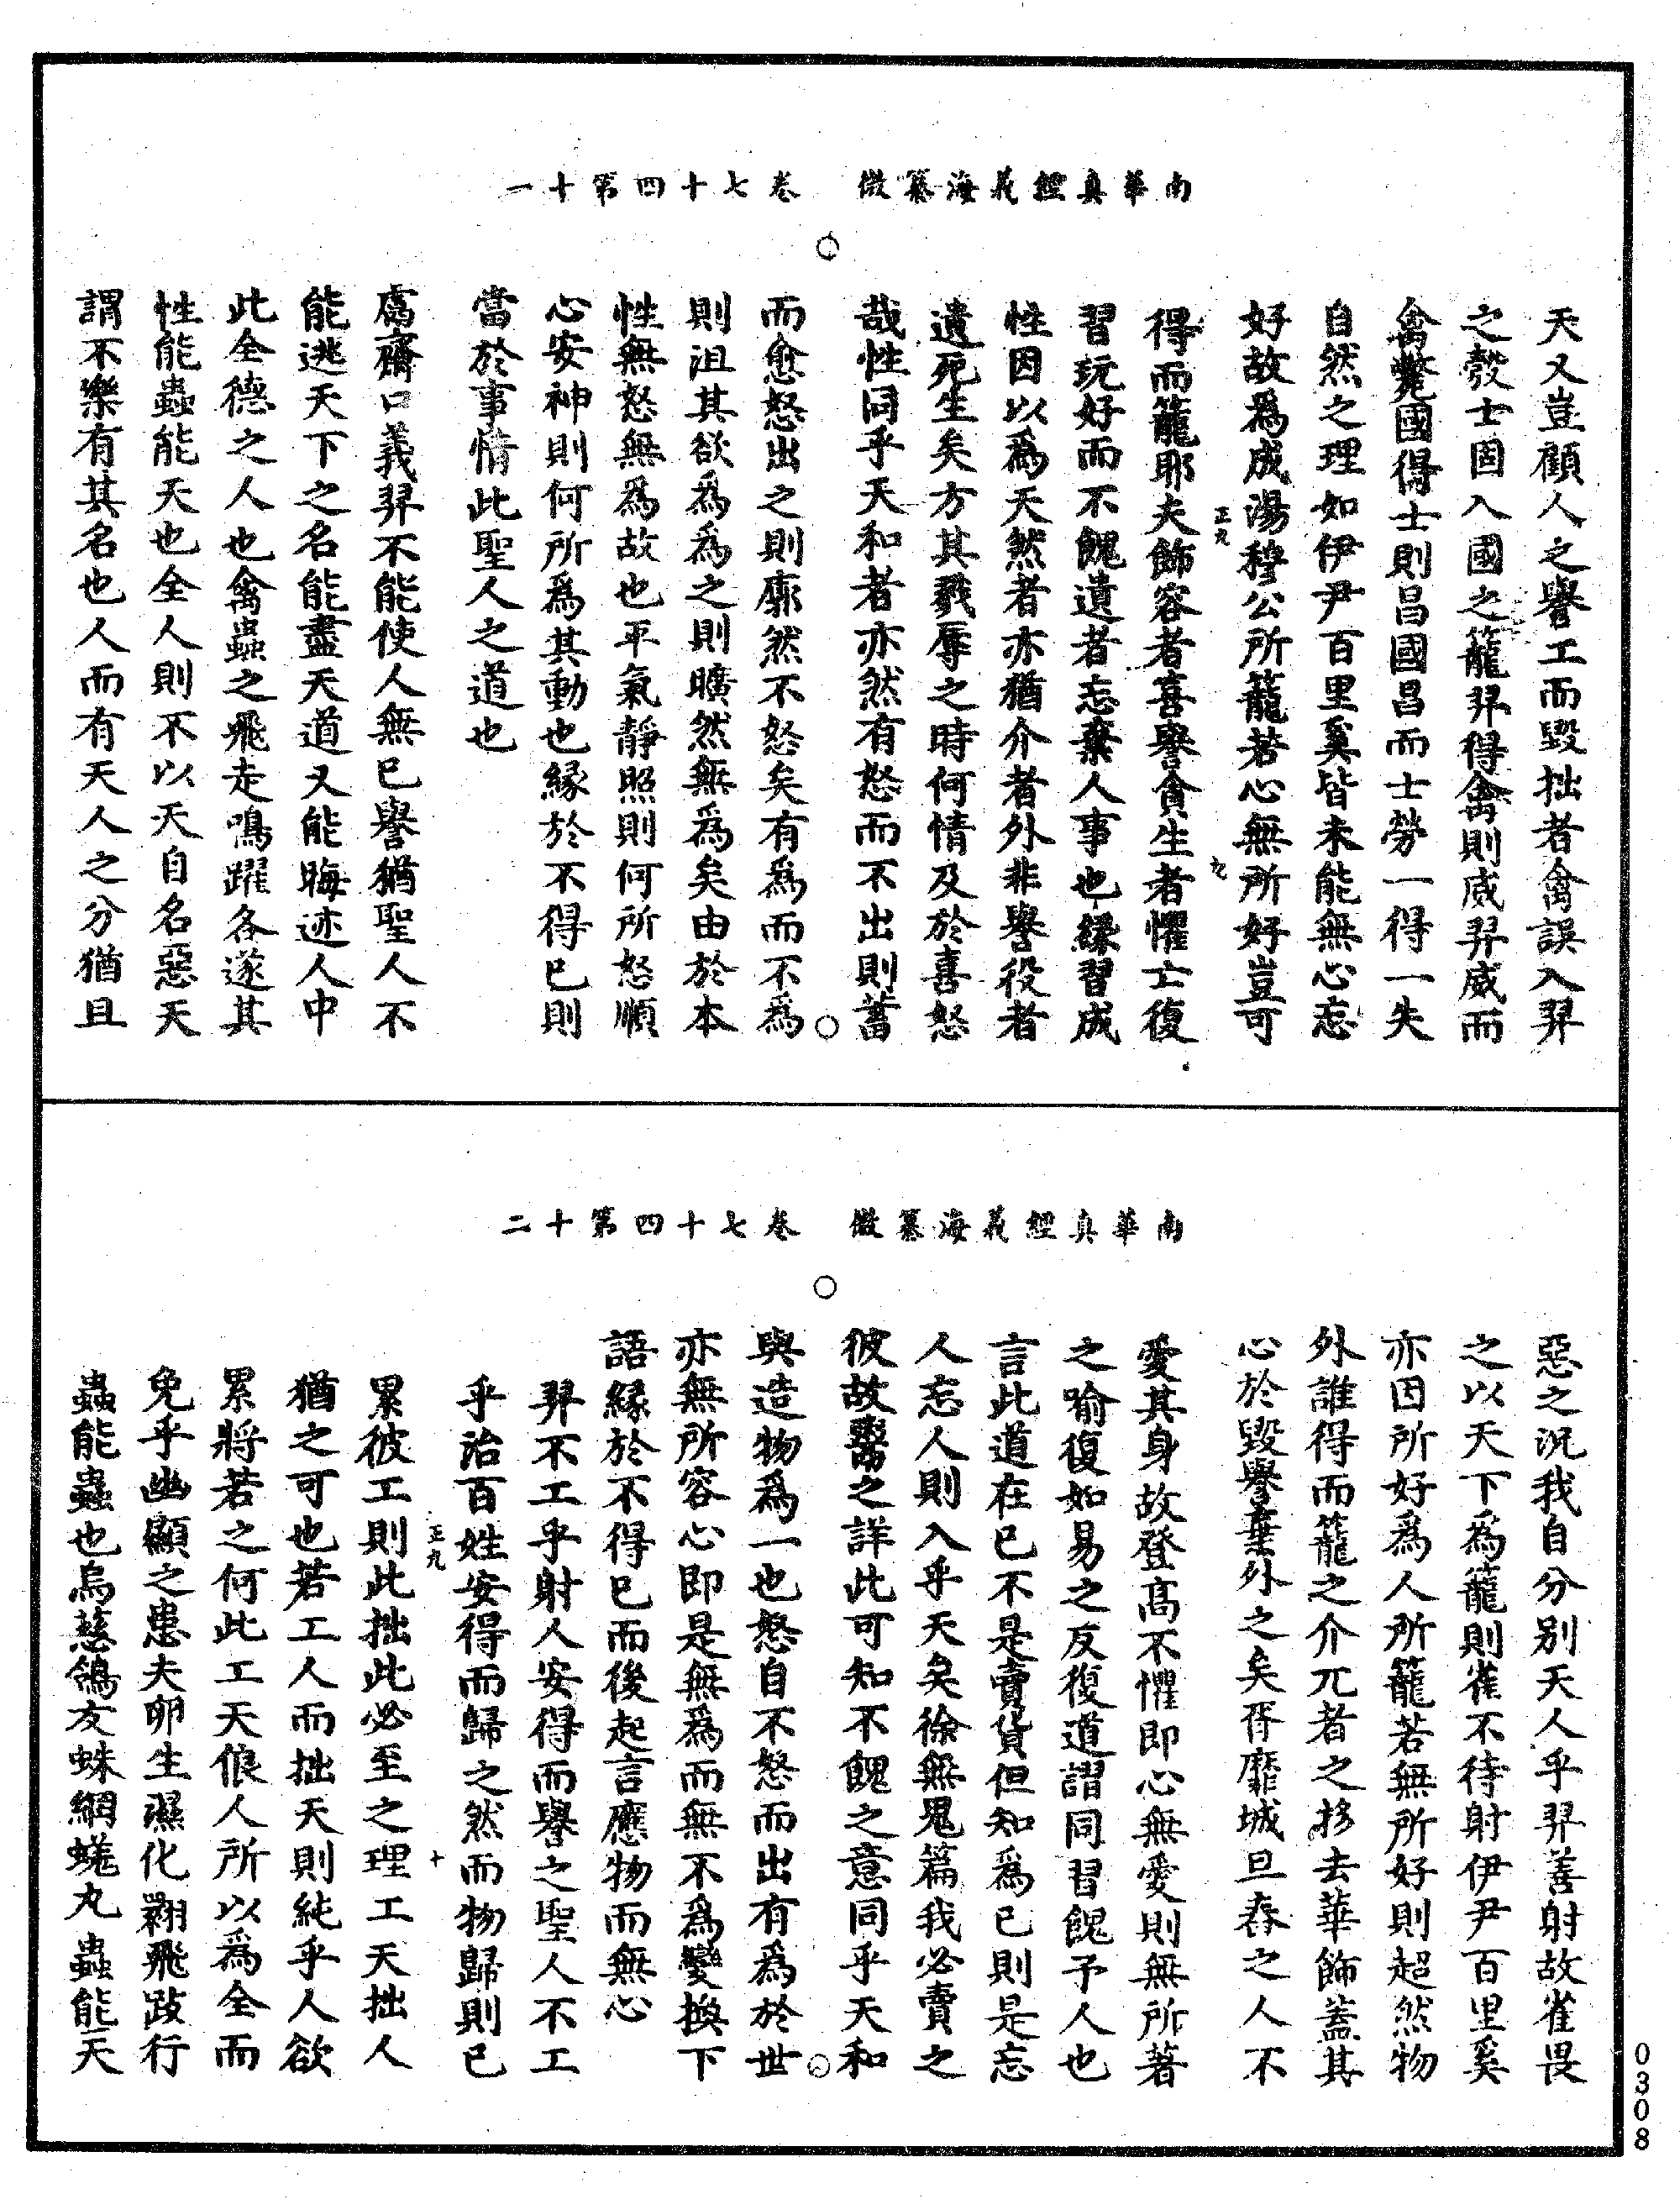 南華真經義海纂微　卷七十四第十一
天又豈顧人之譽工而毀拙者禽誤入羿
之彀士固入國之籠羿得禽則威羿威而
禽斃國得士則昌國昌而士勞一得一失
自然之理如伊尹百里奚皆未能無心忘
好故爲成湯穆公所籠若心無所好豈可
正九　九
得而籠耶夫飾容者喜譽貪生者懼亡復
習玩好而不餽遺者忘棄人事也緣習成
性因以爲天然者亦猶介者外非譽役者
遺死生矣方其戮辱之時何情及於喜怒
哉性同乎天和者亦然有怒而不出則蓄
而愈怒出之則廓然不怒矣有爲而不爲
則沮其欲爲爲之則曠然無爲矣由於本
性無怒無爲故也平氣靜照則何所怒順
心安神則何所爲其動也緣於不得已則
當於事情此聖人之道也
鬳齋口義羿不能使人無已譽猶聖人不
能逃天下之名能盡天道又能晦迹人中
此全德之人也禽蟲之飛走鳴躍各遂其
性能蟲能天也全人則不以天自名惡天
謂不樂有其名也人而有天人之分猶且
南華真經義海纂微　卷七十四第十二
惡之況我自分别天人乎羿善射故雀畏
之以天下爲籠則雀不待射伊尹百里奚
亦因所好爲人所籠若無所好則超然物
外誰得而籠之介兀者之拸去華飾蓋其
心於毀譽棄外之矣胥靡城旦舂之人不
愛其身故登高不懼即心無愛則無所著
之喻復如易之反復道謂同習餽予人也
言此道在已不是賣貨但知爲已則是忘
人忘人則入乎天矣徐無鬼篇我必賣之
彼故鬻之詳此可知不餽之意同乎天和
與造物爲一也怒自不怒而出有爲於世
亦無所容心即是無爲而無不爲變換下
語緣於不得已而後起言應物而無心
羿不工乎射人安得而譽之聖人不工
乎治百姓安得而歸之然而物歸則已
正九　十
累彼工則此拙此必至之理工天拙人
猶之可也若工人而拙天則純乎人欲
累將若之何此工天俍人所以爲全而
免乎幽顯之患夫卵生濕化翾飛跂行
蟲能蟲也烏慈鴿友蛛網蜣丸蟲能天
0308